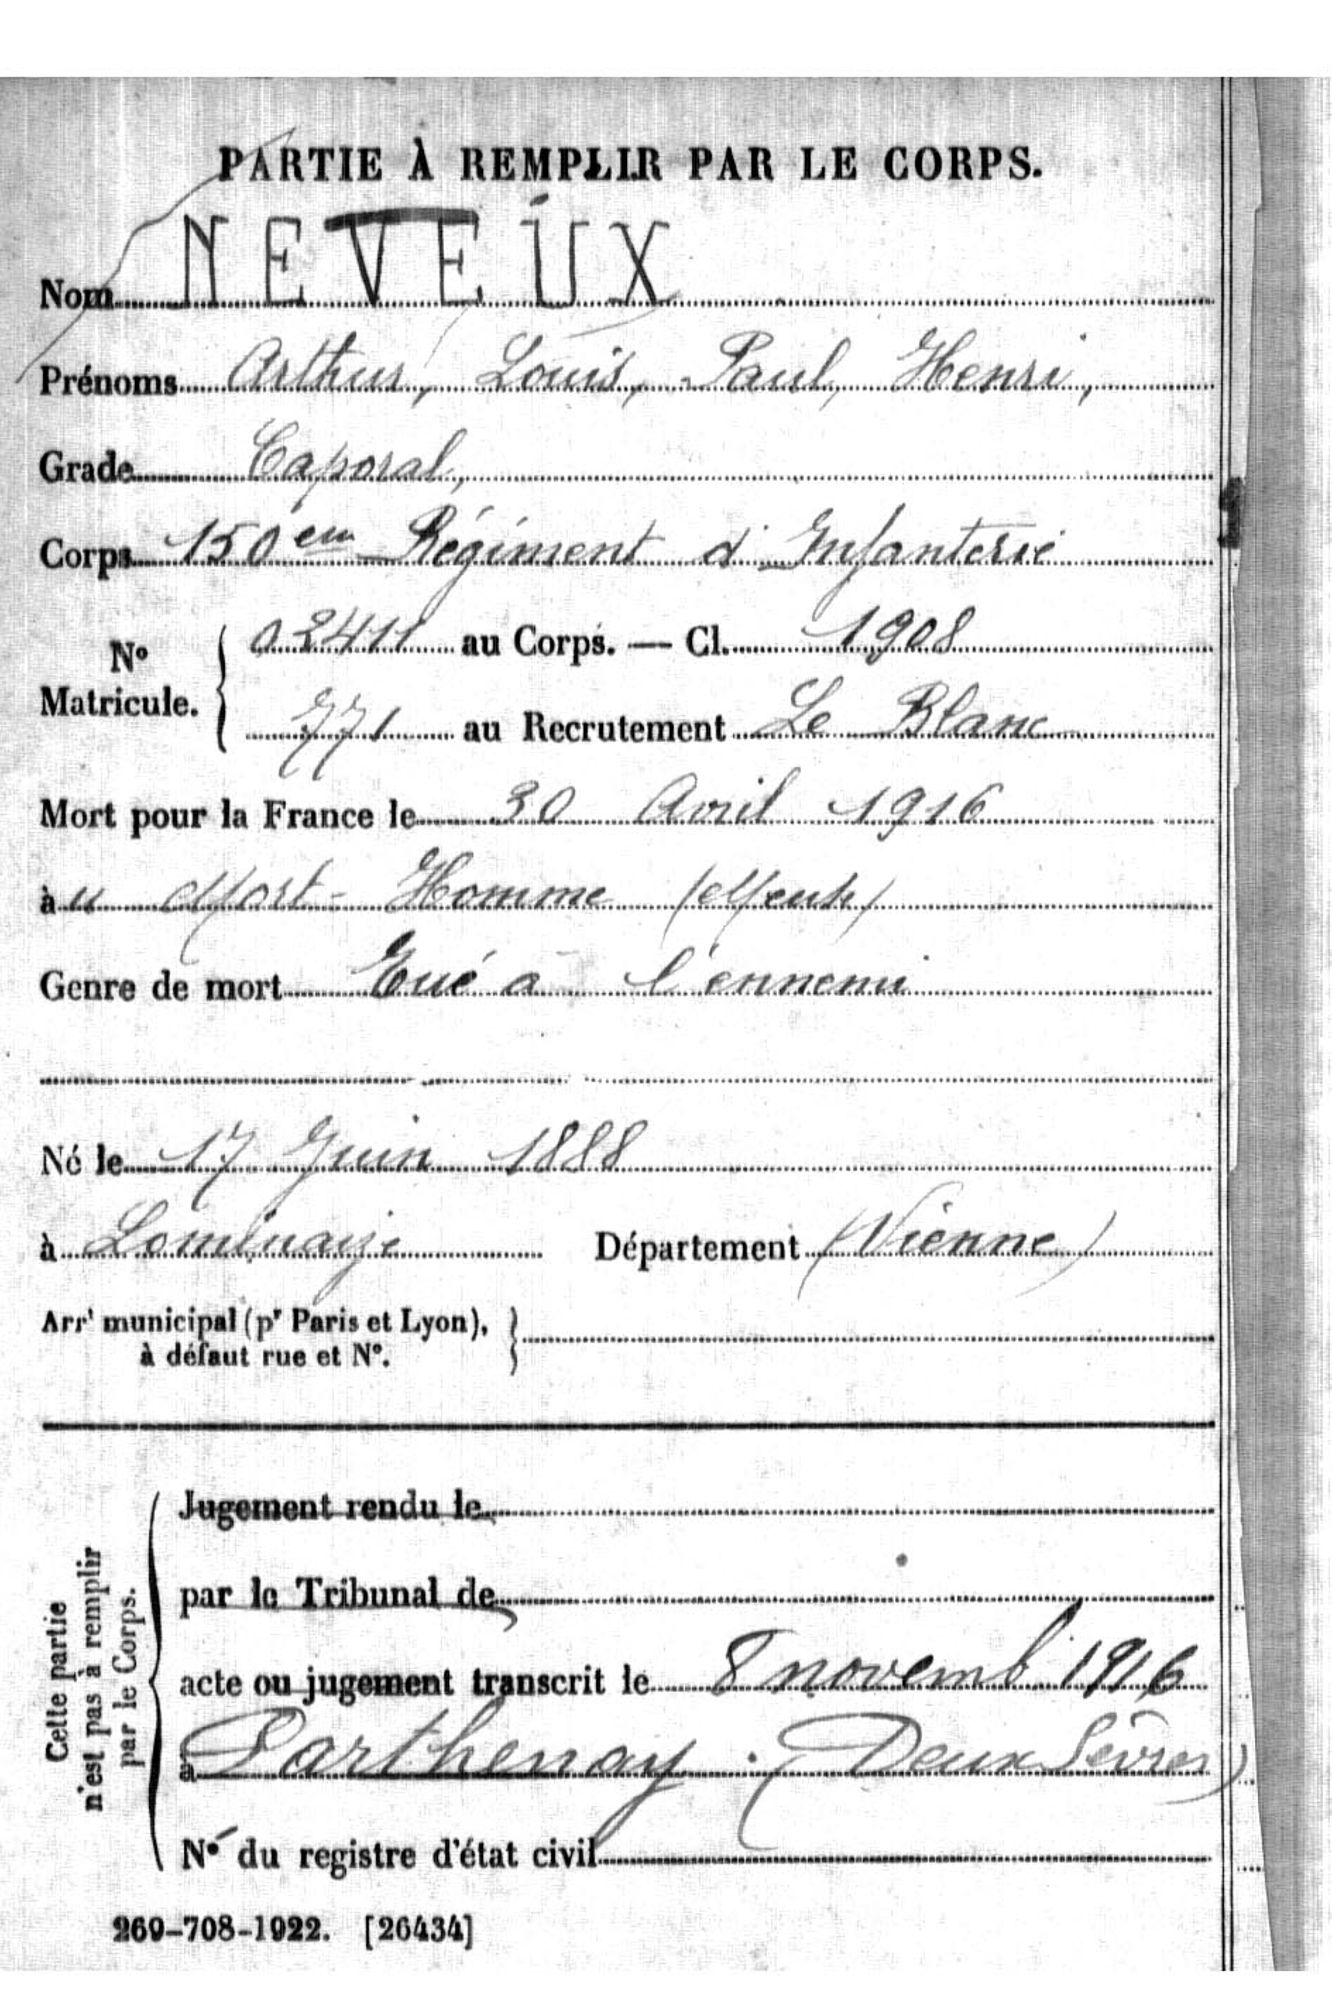 PARTIE À REMPLIR PAR LE CORPS.
Nom NEVEUX
Prénoms Arthur, Louis, Paul, Henri,
Grade Caporal,
Corps 150em Régiment d'Infanterie
No Matricule. { 02411 au Corps. — Cl. 1908
771 au Recrutement Le Blanc
Mort pour la France le 30 Avril 1916
à u Mort-Homme (Meuse)
Genre de mort Tué à l'ennemi
Né le 17 Juin 1888
à Département (Vienne)
Arrt municipal (pr Paris et Lyon), }
à défaut rue et No.
Cette partie
n'est pas à remplir
par le Corps.
Jugement rendu le
par le Tribunal de
acte ou jugement transcrit le 8 novemb 1916
à Parthenay (Deux Sèvres)
No du registre d'état civil
269-708-1922. [26434]